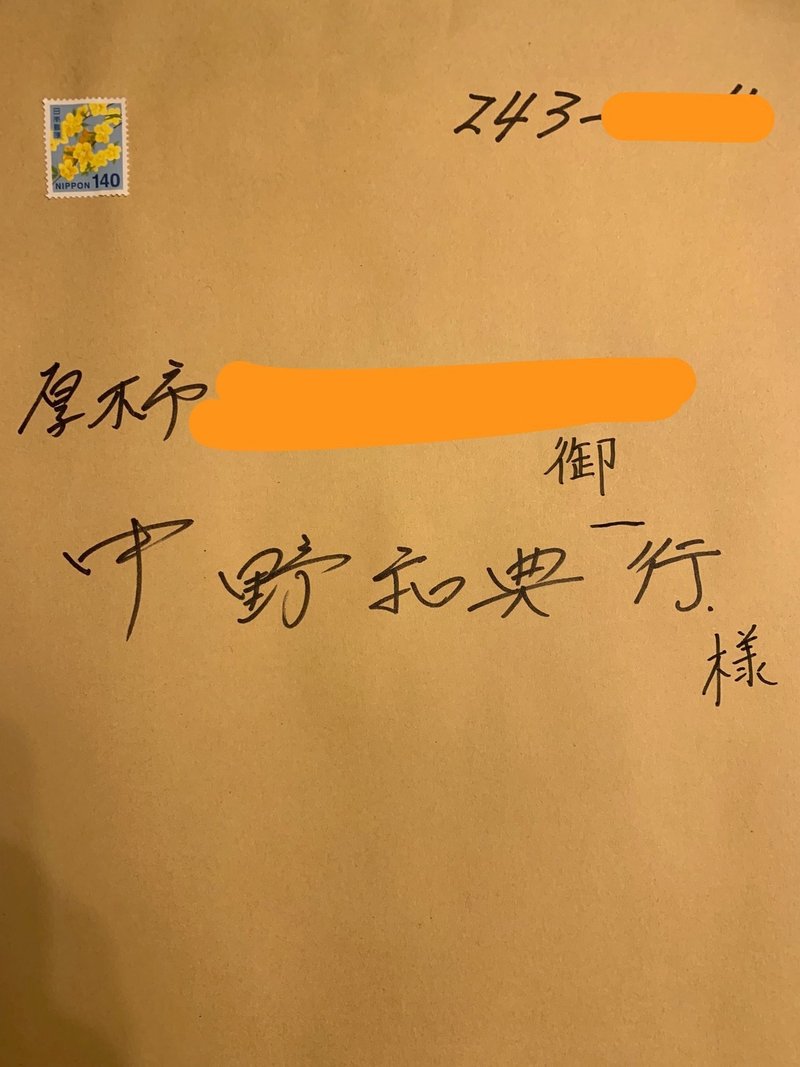 243-
日本郵便
NIPPON 140
厚木市
御一
中野和典 行
様